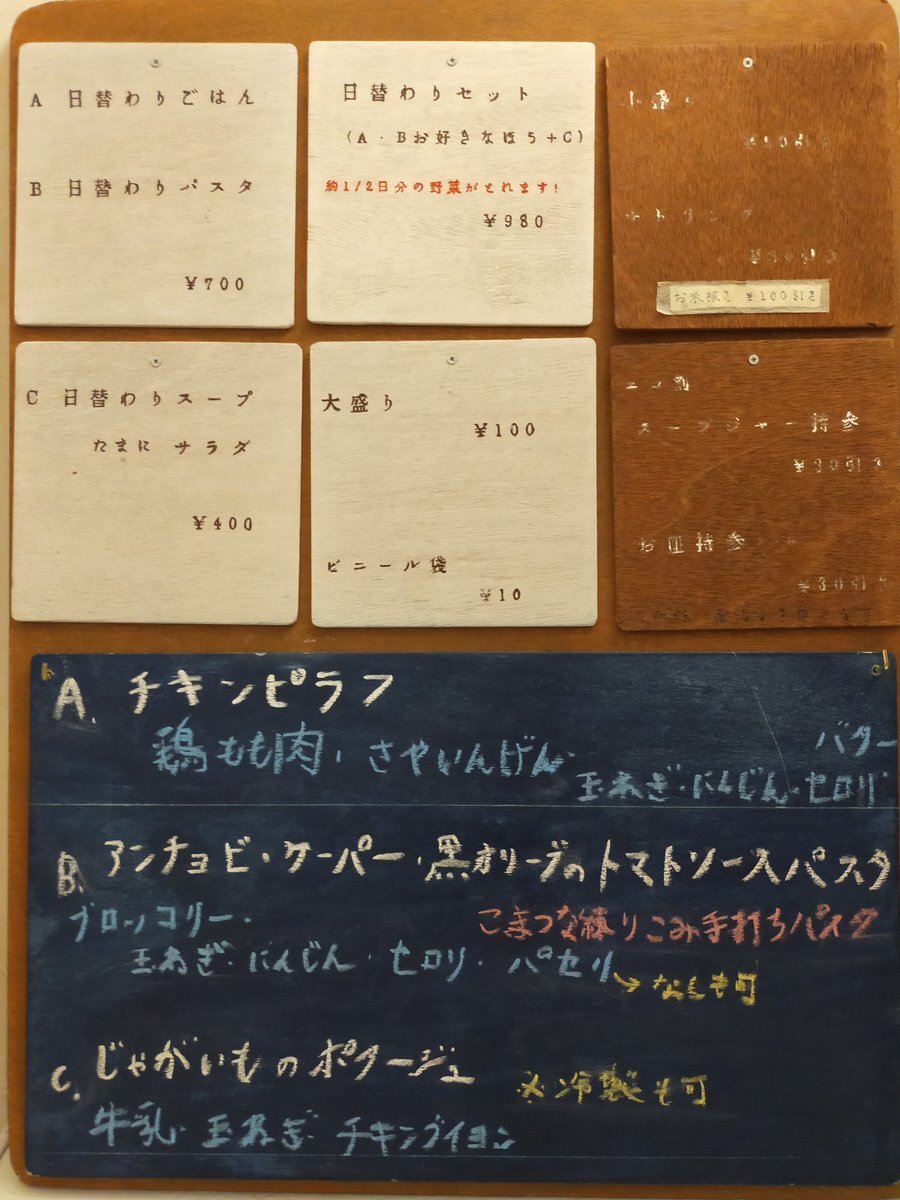 A 日替わりごはん
B 日替わりパスタ
¥700
日替わりセット
(A・Bお好きなほう+C)
約1/2日分の野菜がとれます!
¥980
お米抜き ¥100引き
C 日替わりスープ
たまに サラダ
¥400
大盛り
¥100
ビニール袋
¥10
エコ割
スープジャー持参
¥30引き
お皿持参
¥30引き
A. チキンピラフ
鶏もも肉、さやいんげん
バター
玉ねぎ・にんじん・セロリ
B. アンチョビ・ケーパー・黒オリーブのトマトソースパスタ
ブロッコリー・
こまつな練りこみ手打ちパスタ
玉ねぎ・にんじん・セロリ・パセリ
→なしも可
C. じゃがいものポタージュ
※冷製も可
牛乳・玉ねぎ・チキンブイヨン